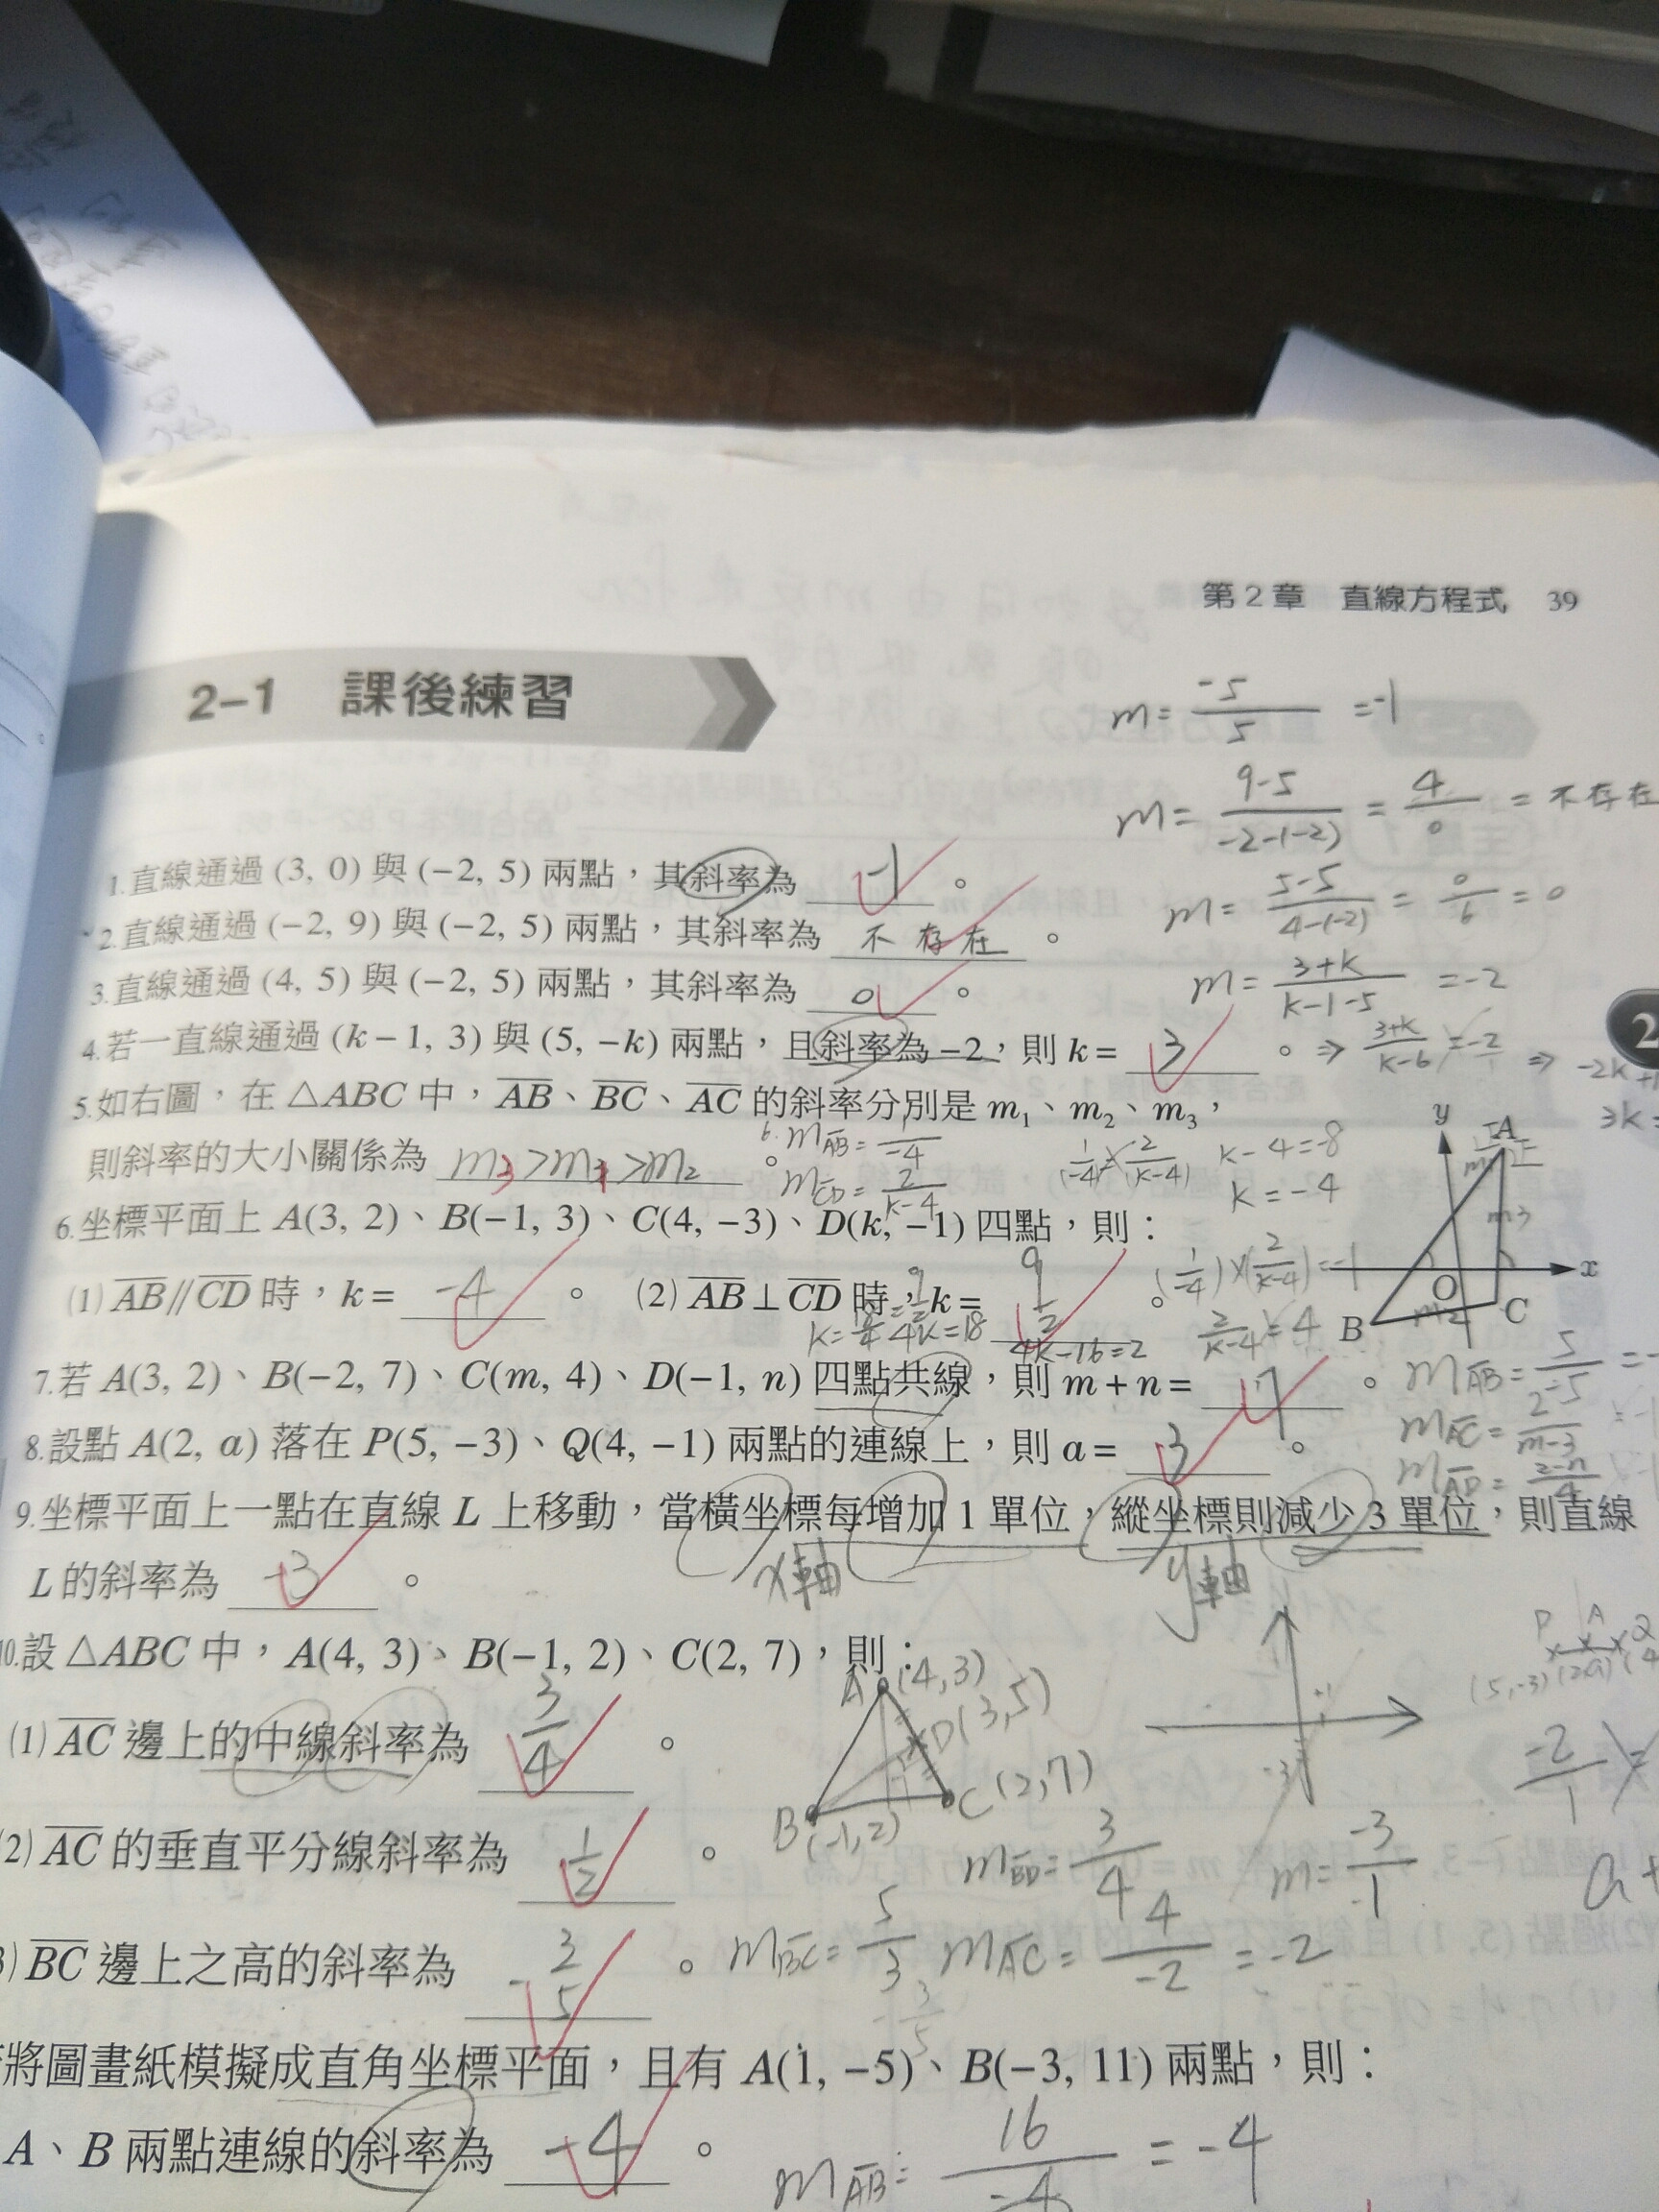 第2章 直線方程式 39
2-1 課後練習
m = -5/5 = -1
m = 9-5/-2-(-2) = 4/0 = 不存在
1.直線通過 (3, 0) 與 (-2, 5) 兩點，其斜率為 -1 。
m = 5-5/4-(-2) = 0/6 = 0
2.直線通過 (-2, 9) 與 (-2, 5) 兩點，其斜率為 不存在 。
3.直線通過 (4, 5) 與 (-2, 5) 兩點，其斜率為 0 。
m = 3+k/k-1-5 = -2
4.若一直線通過 (k-1, 3) 與 (5, -k) 兩點，且斜率為 -2，則 k = 3 。
⇒ 3+k/k-6 = -2/1 ⇒ -2k+1
3k=
2
5.如右圖，在 △ABC 中，AB、BC、AC 的斜率分別是 m₁、m₂、m₃，
則斜率的大小關係為 m3 > m1 > m2 。
6. mAB = 1/-4
mCD = 2/k-4
(1/-4) = 2/(k-4)
k-4=-8
k=-4
y
A
m3
x
O
B
m2
C
6.坐標平面上 A(3, 2)、B(-1, 3)、C(4, -3)、D(k, -1) 四點，則：
(1) AB // CD 時，k = -4 。 (2) AB ⊥ CD 時，k = 9/2 。
(1/-4)×(2/k-4)=-1
2/k-4 = 4
4k-16=2
4k=18
k=18/4=9/2
7.若 A(3, 2)、B(-2, 7)、C(m, 4)、D(-1, n) 四點共線，則 m+n = 7 。
mAB = 5/-5 = -
mAC = 2/m-3 = -1
mAD = 2-n/4
8.設點 A(2, a) 落在 P(5, -3)、Q(4, -1) 兩點的連線上，則 a = 3 。
9.坐標平面上一點在直線 L 上移動，當橫坐標每增加 1 單位，縱坐標則減少 3 單位，則直線
L 的斜率為 -3 。
x軸
y軸
P A Q
(5,-3) (2,a) (4
-2/1 =
a+
10.設 △ABC 中，A(4, 3)、B(-1, 2)、C(2, 7)，則：
(1) AC 邊上的中線斜率為 3/4 。
A (4,3)
D(3,5)
B (-1,2)
C (2,7)
-3
2) AC 的垂直平分線斜率為 1/2 。
mBD = 3/4
m = -3/1
) BC 邊上之高的斜率為 -3/5 。
mBC = 5/3
mAC = 4/-2 = -2
-3/5
將圖畫紙模擬成直角坐標平面，且有 A(1, -5)、B(-3, 11) 兩點，則：
A、B 兩點連線的斜率為 -4 。
mAB = 16/-4 = -4